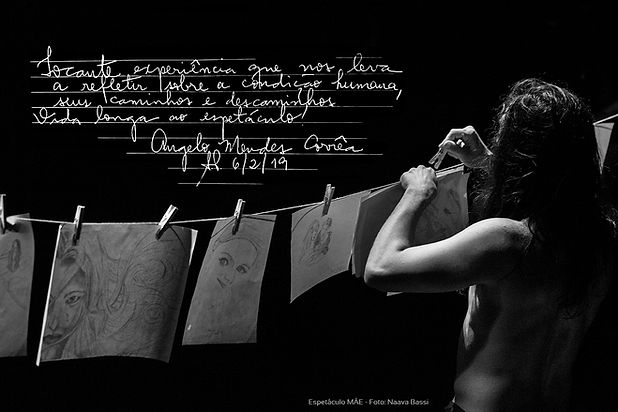 Tocante experiência que nos leva
a refletir sobre a condição humana,
seus caminhos e descaminhos.
Vida longa ao espetáculo!
Angelo Mendes Corrêa
6/2/19
Espetáculo MÃE - Foto: Naava Bassi